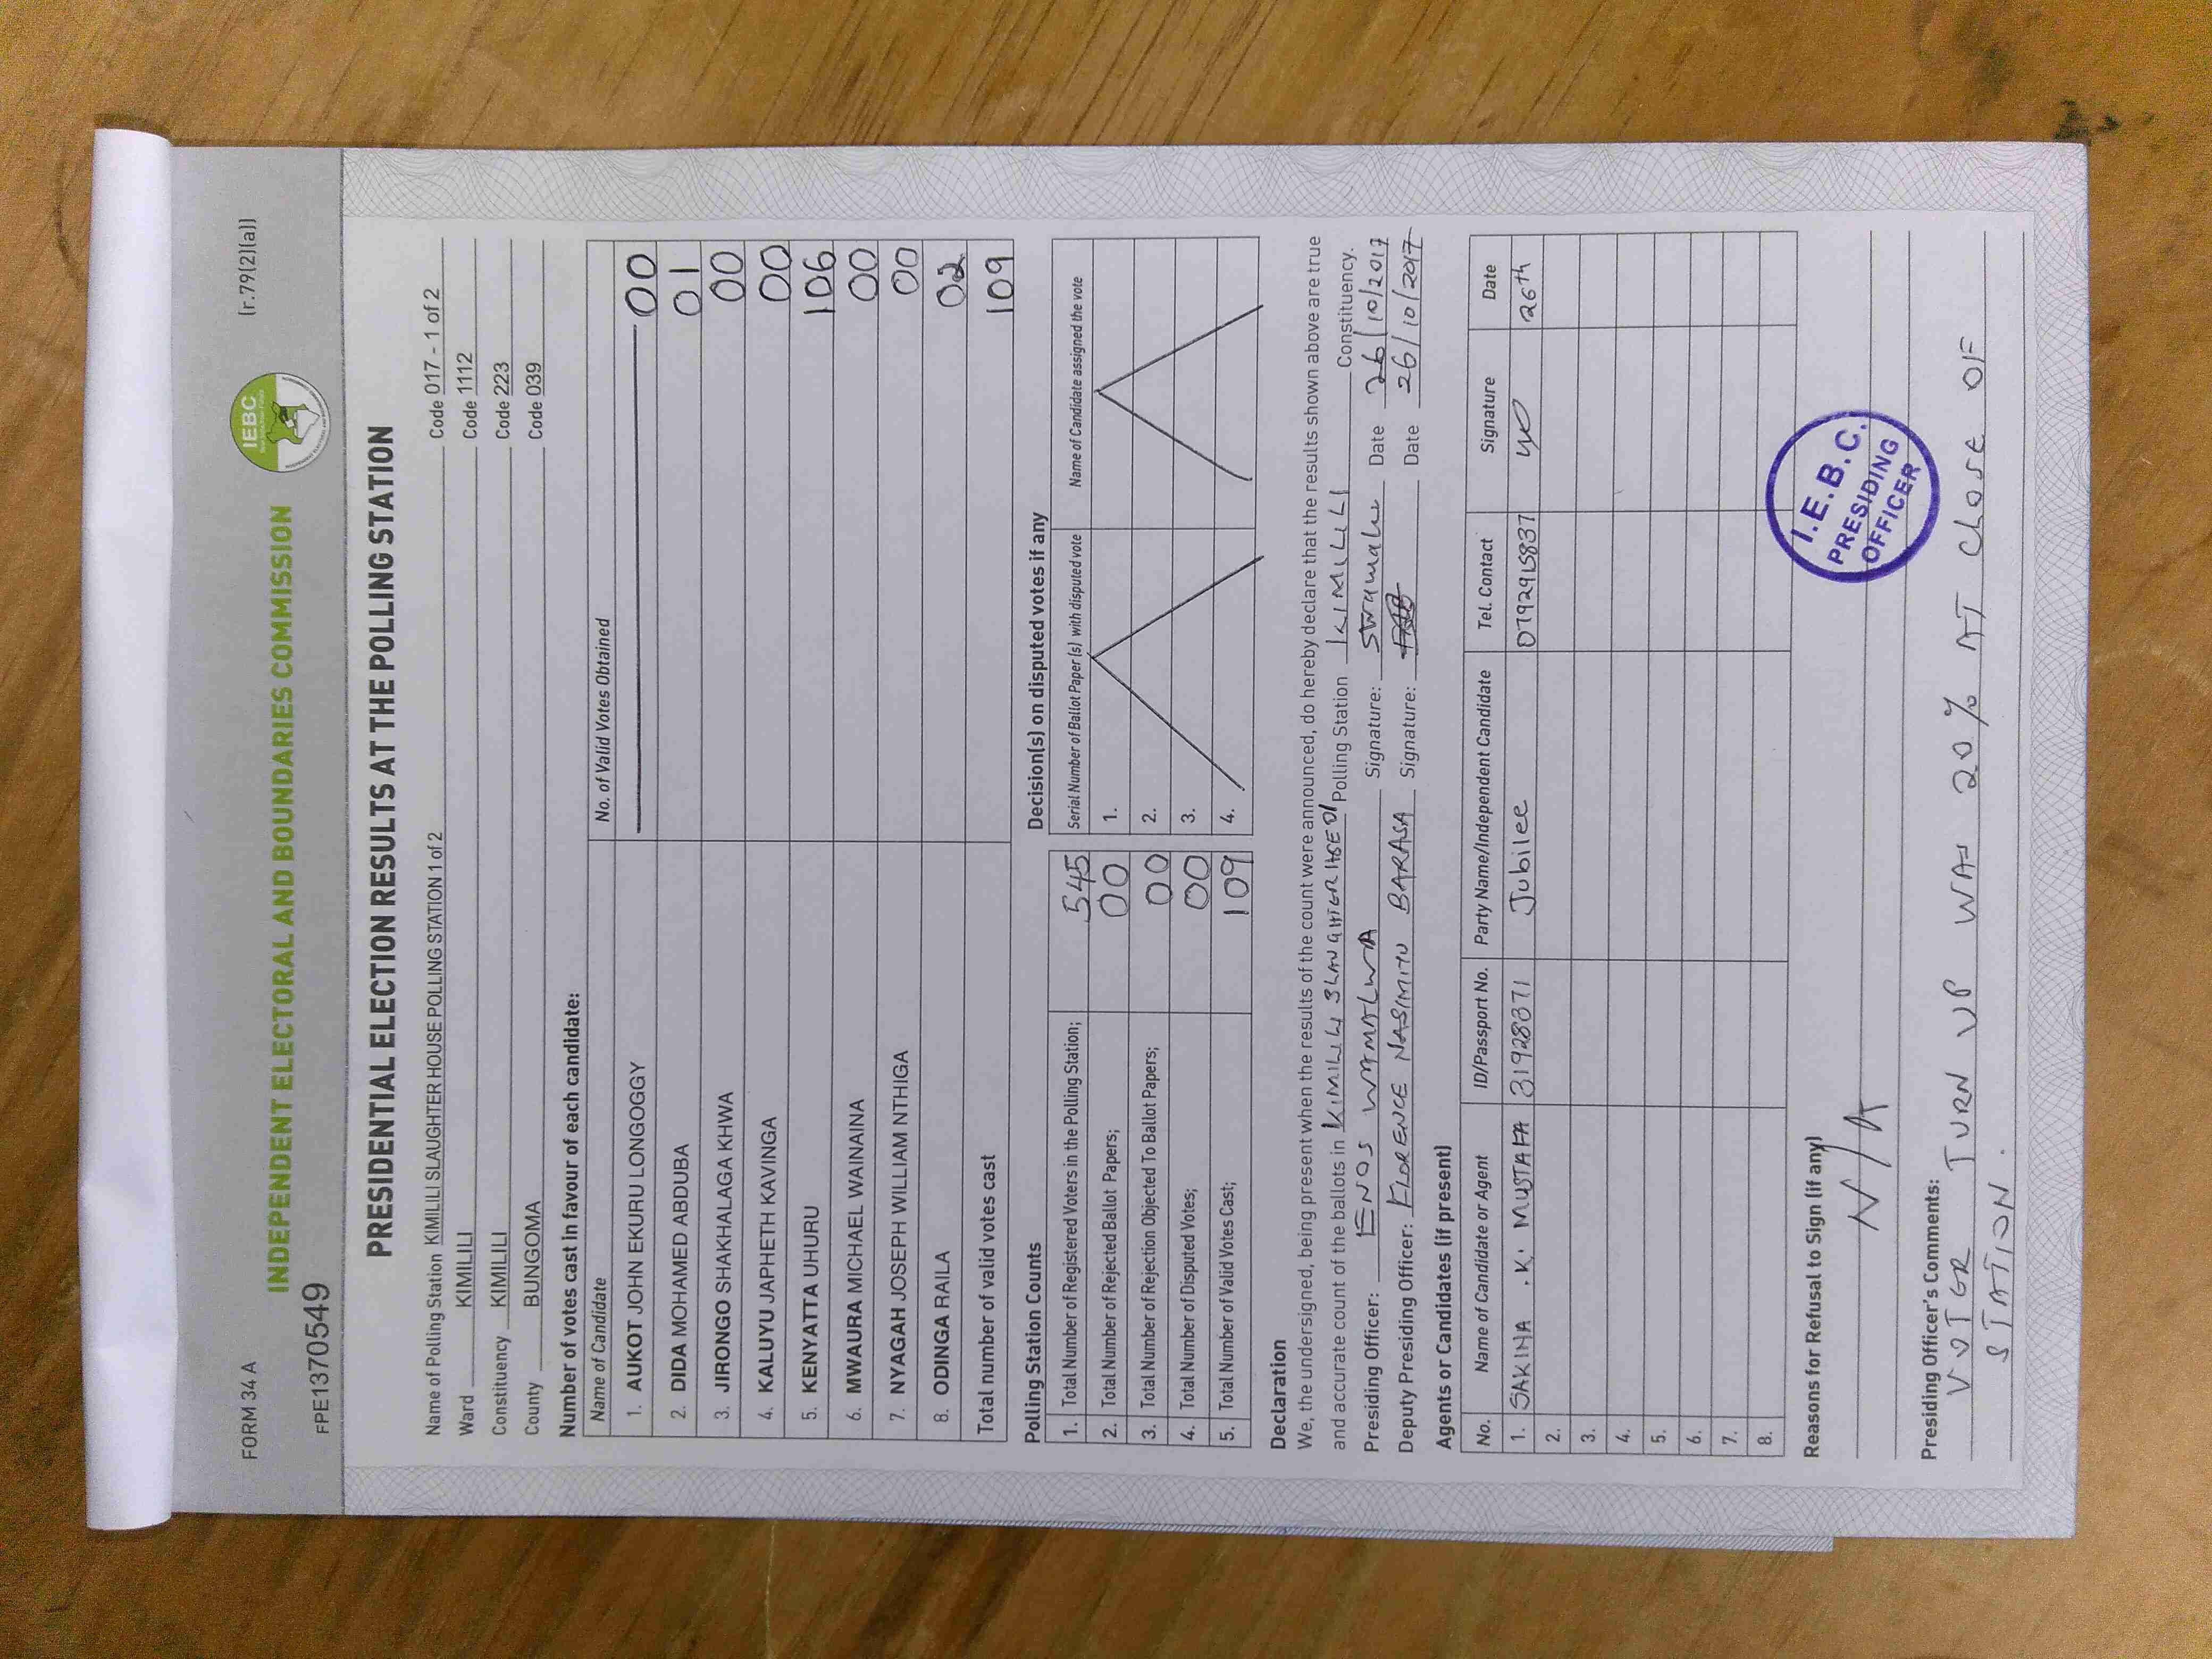 FORM 34 A
(r.79(2)(a))
IEBC
INDEPENDENT ELECTORAL AND BOUNDARIES COMMISSION
FPE1370549
PRESIDENTIAL ELECTION RESULTS AT THE POLLING STATION
Name of Polling Station KIMILILI SLAUGHTER HOUSE POLLING STATION 1 of 2 Code 017 - 1 of 2
Ward KIMILILI Code 1112
Constituency KIMILILI Code 223
County BUNGOMA Code 039
Number of votes cast in favour of each candidate:
Name of Candidate No. of Valid Votes Obtained
1. AUKOT JOHN EKURU LONGOGGY 00
2. DIDA MOHAMED ABDUBA 01
3. JIRONGO SHAKHALAGA KHWA 00
4. KALUYU JAPHETH KAVINGA 00
5. KENYATTA UHURU 106
6. MWAURA MICHAEL WAINAINA 00
7. NYAGAH JOSEPH WILLIAM NTHIGA 00
8. ODINGA RAILA 02
Total number of valid votes cast 109
Polling Station Counts
1. Total Number of Registered Voters in the Polling Station; 545
2. Total Number of Rejected Ballot Papers; 00
3. Total Number of Rejection Objected To Ballot Papers; 00
4. Total Number of Disputed Votes; 00
5. Total Number of Valid Votes Cast; 109
Decision(s) on disputed votes if any
Serial Number of Ballot Paper (s) with disputed vote Name of Candidate assigned the vote
1.
2.
3.
4.
Declaration
We, the undersigned, being present when the results of the count were announced, do hereby declare that the results shown above are true
and accurate count of the ballots in KIMILILI SLAUGHTER HSE 01 Polling Station KIMILILI Constituency.
Presiding Officer: ENOS WAMALWA Signature: Date 26/10/2017
Deputy Presiding Officer: FLORENCE NASIMIYU BARASA Signature: Date 26/10/2017
Agents or Candidates (if present)
No. Name of Candidate or Agent ID/Passport No. Party Name/Independent Candidate Tel. Contact Signature Date
1. SAKINA .K. MUSTAFA 31928371 Jubilee 0792915837 26th
2.
3.
4.
5.
6.
7.
8.
Reasons for Refusal to Sign (if any)
N/A
I.E.B.C.
PRESIDING
OFFICER
Presiding Officer's Comments:
VOTER TURN UP WAS 20% AT CLOSE OF
STATION.